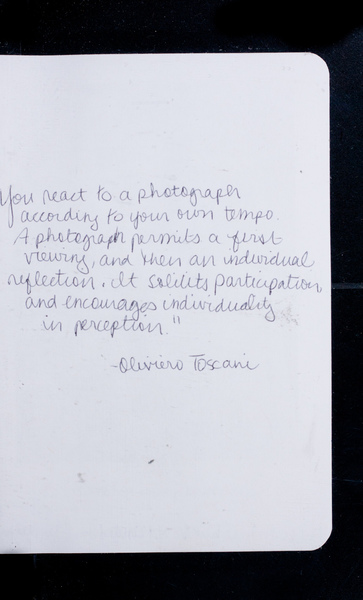 You react to a photograph
according to your own tempo.
A photograph permits a first
viewing, and then an individual
reflection. It solitits participation,
and encourages individuality
in perception."
-Oliviero Toscani